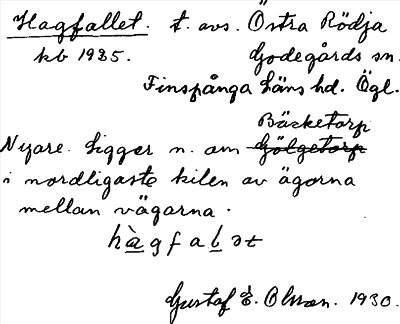 Hagfallet. t. avs. Östra Rödja
kb 1935. Godegårds sn.
Finspånga läns hd. Ögl.
Bäcketorp
Nyare. Ligger n. om Gölgetorp
i nordligaste kilen av ägorna
mellan vägarna.
hàgfaḷət
Gustaf E. Olsson. 1930.